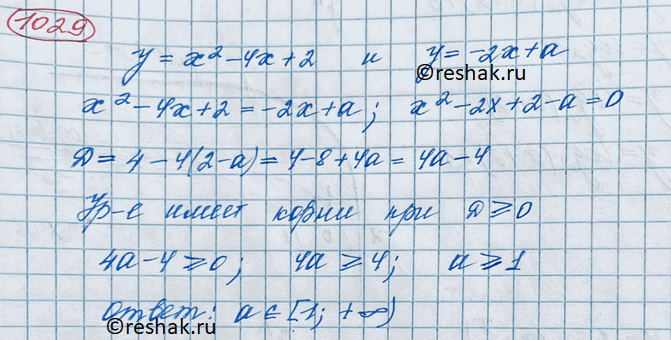 1029
y = x² - 4x + 2 и y = -2x + a
©reshak.ru
x² - 4x + 2 = -2x + a; x² - 2x + 2 - a = 0
D = 4 - 4(2 - a) = 4 - 8 + 4a = 4a - 4
Ур-е имеет корни при D ≥ 0
4a - 4 ≥ 0; 4a ≥ 4; a ≥ 1
Ответ: a ∈ [1; +∞)
©reshak.ru